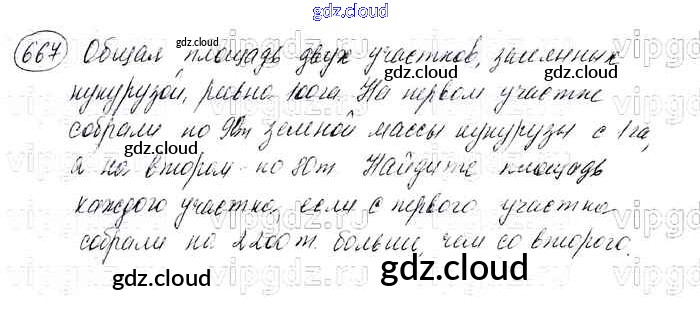 gdz.cloud
667 Общая площадь двух участков, засеянных
кукурузой, равна 100га. На первом участке
собрали по 90т зеленой массы кукурузы с 1га,
а на втором - по 80т. Найдите площадь
каждого участка, если с первого участка
собрали на 2200т больше, чем со второго.
gdz.cloud
gdz.cloud
gdz.cloud
gdz.cloud
gdz.cloud
gdz.cloud
gdz.cloud